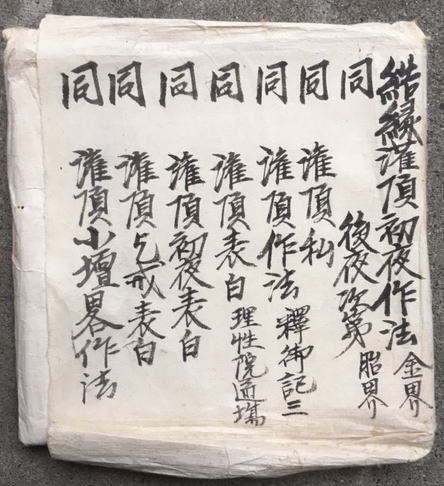 結縁灌頂初夜作法 金界
同 後夜次第 胎界
同 灌頂私
同 灌頂作法 釋御記三
同 灌頂表白 理性院道場
同 灌頂初夜表白
同 灌頂乞戒表白
同 灌頂小壇畧作法